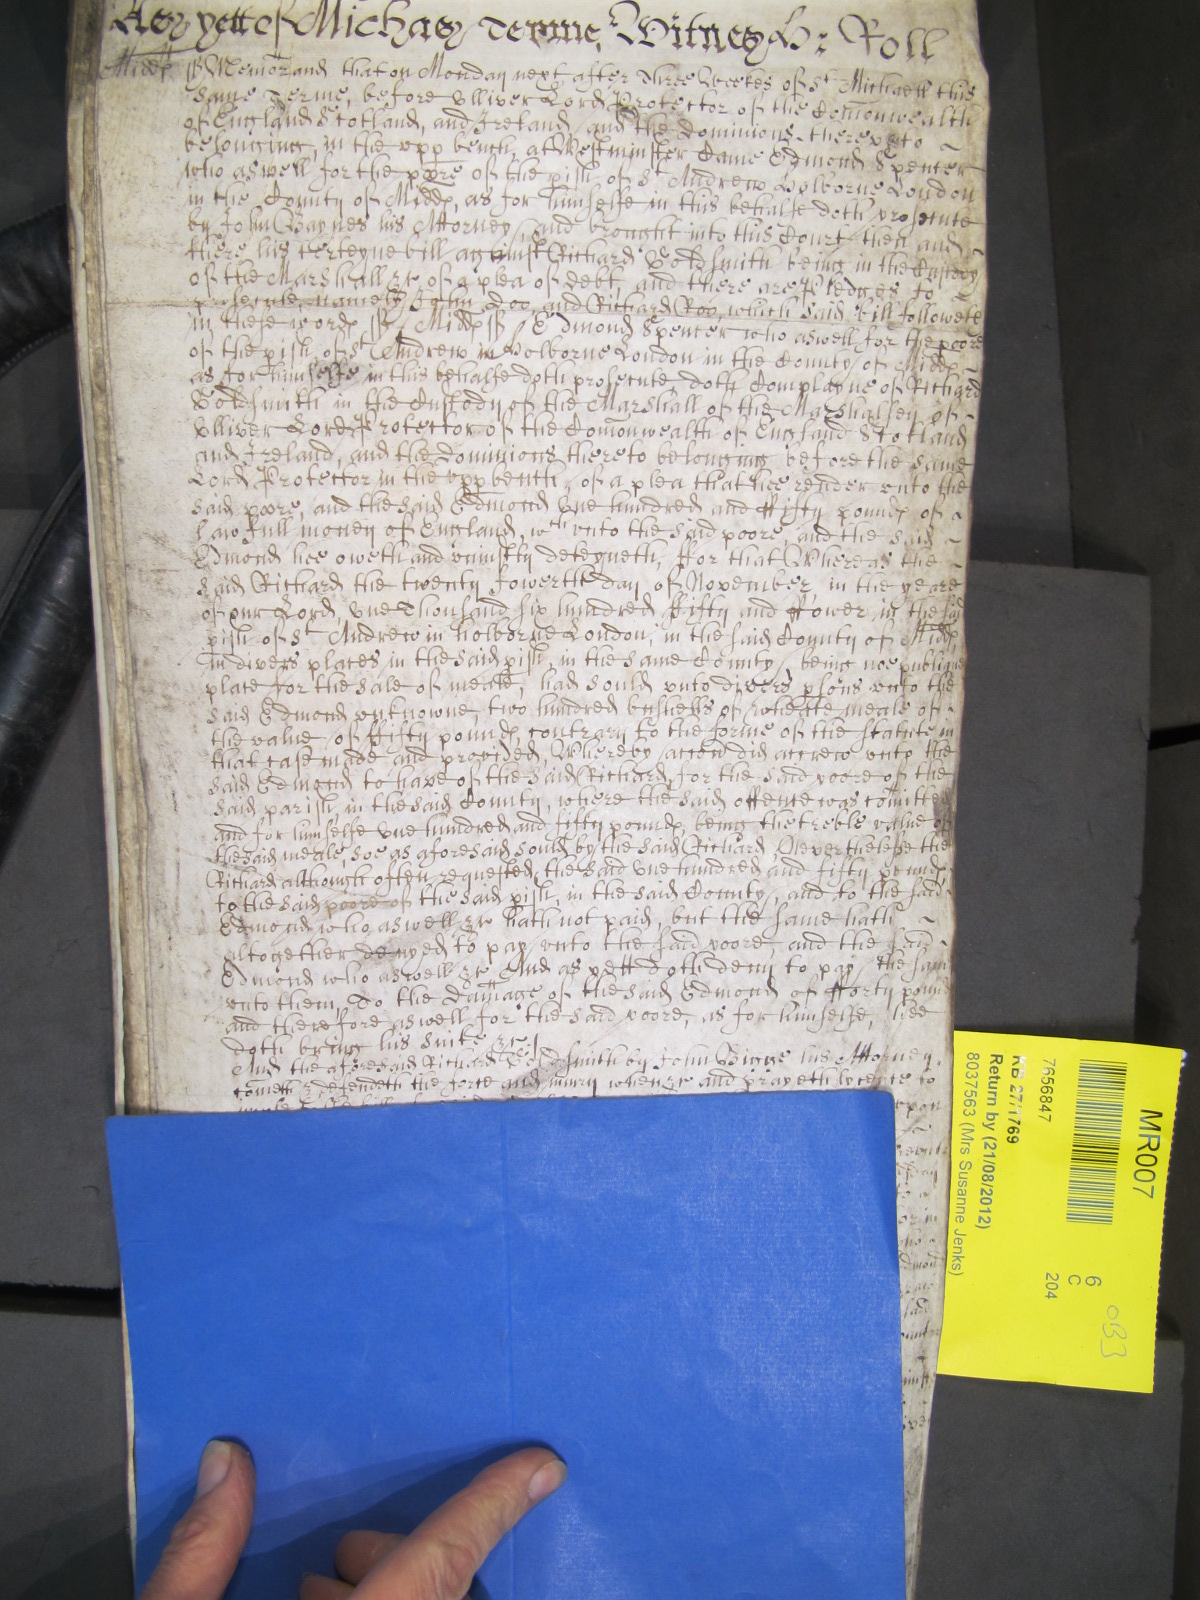 As yett of Michas Terme, Witnes H: Roll
Midd ss Memorand that on Monday next after Three Weekes of St Michaell this
same Terme, before Olliver Lord Protector of the Comonwealth
of England Scotland, and Ireland and the dominions thereunto
belonging, in the upp bench, at Westminster Came Edmond Spencer
who aswell for the poore of the pish of St Andrew Holborne London
in the County of Midd, as for himselfe in this behalfe doth prosecute
by John Baynes his Attorney, and brought into this Court then and
there his certeyne bill against Richard Goldsmith being in the Custody
of the Marshall &c of a plea of debt, and there are Pledges to
prosecute, namely John Doo, and Richard Roo, which said bill followeth
in these word ss Midd ss Edmond Spencer who aswell for the poore
of the pish of St Andrew in Holborne London in the County of Midd
as for himselfe in this behalfe doth prosecute, doth Complayne of Richard
Goldsmith in the Custody of the Marshall of the Marshalsey of
Olliver Lord Protector of the Comonwealth of England Scotland
and Ireland, and the dominions thereto belonging before the same
Lord Protector in the upp bench, of a plea that hee render unto the
said poore, and the said Edmond One hundred and ffifty pound of
lawfull money of England, wch unto the said poore, and the said
Edmond hee oweth and uniustly deteyneth, ffor that Whereas the
said Richard the twenty fowerth day of November, in the yeare
of our Lord, One thousand six hundred ffifty and ffower in the said
pish of St Andrew in holborne London, in the said County of Midd,
In divers places in the said pish, in the same County, being noe publique
place for the sale of meale, had sould unto divers psons unto the
said Edmond unknowne, two hundred bushells of wheate meale of
the value of ffifty pound, contrary to the forme of the statute in
that case made and provided, Whereby accon did accrew unto the
said Edmond to have of the said Richard, for the said poore of the
said parish, in the said County, where the said offence was comitted
and for himselfe One hundred and fifty pound, being the treble value of
the said meale, soe as aforesaid sould by the said Richard, Neverthelesse the
Richard although often requested, the said One hundred and fifty pound
to the said poore of the said pish, in the said County, and to the said
Edmond who aswell &c hath not paid, but the same hath
altogether denyed to pay unto the said poore, and the said
Edmond who aswell &c And as yett doth deny to pay the same
unto them, To the damage of the said Edmond of fforty pound
and therefore aswell for the said poore, as for himselfe, hee
doth bring his suite &c
And the aforesaid Richard Goldsmith by John Bigge his Attorney
cometh & defendeth the force and iniury when &c and prayeth lycence to
MR007
7656847
KB 27/1769
Return by (21/08/2012)
8037563 (Mrs Susanne Jenks)
6
C
204